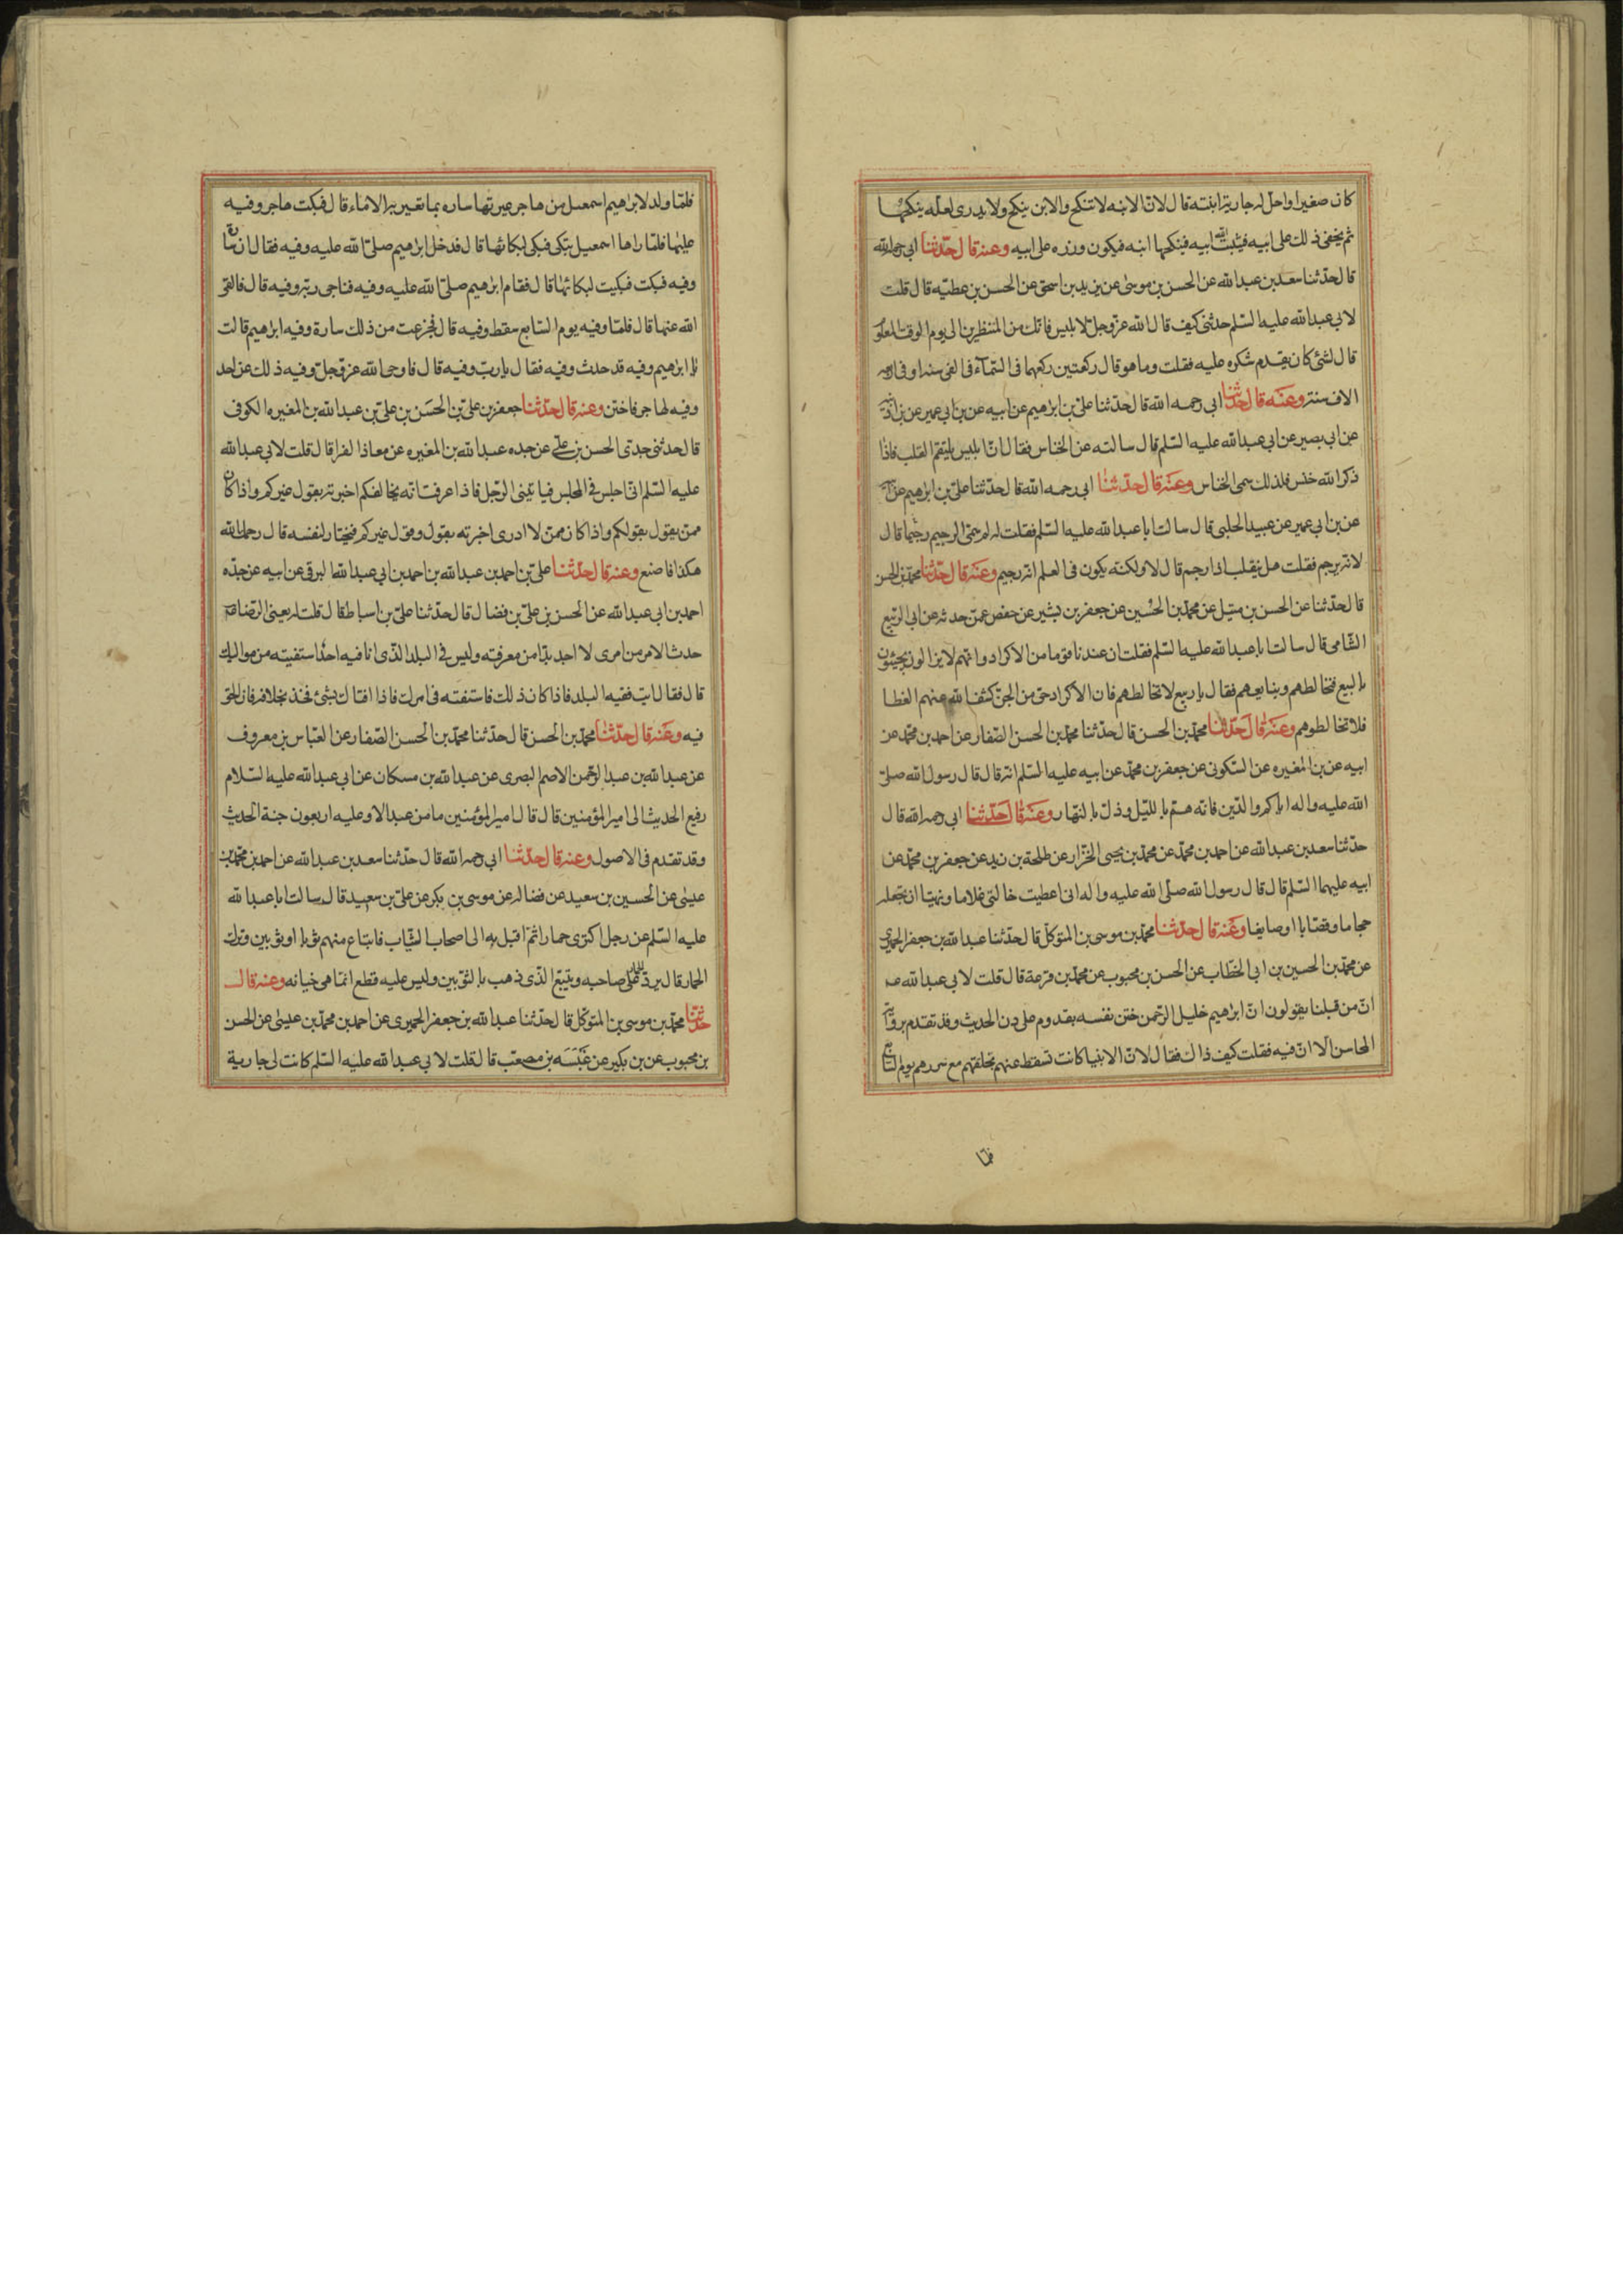 كان صغيرا واحل له جارية ابنته قال لان الابنه لا تنكح والابن ينكح ولا يدرى لعله ينكحها
ثم يخفى ذلك على ابيه فيثبت ابيه فينكحها ابنه فيكون وزره على ابيه وعنه قال حدثنا ابى رحمه الله
قال حدثنا سعد بن عبد الله عن الحسن بن موسى عن يزيد بن اسحق عن الحسن بن عطيه قال قلت
لابى عبد الله عليه السلم حدثنى كيف قال الله عز وجل لابليس فانك من المنظرين الى يوم الوقت المعلوم
قال لشئ كان يقدم شكره عليه فقلت وما هو قال ركعتين ركعهما فى السماء فى الفى سنه او فى اربعه
الاف سنه وعنه قال حدثنا ابى رحمه الله قال حدثنا على بن ابراهيم عن ابيه عن بن ابى عمير عن بن اذينه
عن ابى بصير عن ابى عبد الله عليه السلم قال سالته عن الخناس فقال ان ابليس يلتقم القلب فاذا
ذكر الله خنس فلذلك سمى الخناس وعنه قال حدثنا ابى رحمه الله قال حدثنا على بن ابراهيم عن ابيه
عن بن ابى عمير عن عبيد الحلبى قال سالت ابا عبد الله عليه السلم فقلت له لم سمى الرجيم رجيما قال
لانه يرجم فقلت هل ينقلب اذا رجم قال لا ولكنه يكون فى العلم انه رجيم وعنه قال حدثنا محمد بن الحسن
قال حدثنا عن الحسن بن متيل عن محمد بن الحسين عن جعفر بن بشير عن حفص عمن حدثه عن ابى الربيع
الشامى قال سالت ابا عبد الله عليه السلم فقلت ان عندنا قوما من الاكراد وانهم لا يزالون يجيئون
بالبيع فنخالطهم ونبايعهم فقال يا ربيع لا تخالطهم فان الاكراد حى من الجن كشف الله عنهم الغطا
فلا تخالطوهم وعنه قال حدثنا محمد بن الحسن قال حدثنا محمد بن الحسن الصفار عن احمد بن محمد عن
ابيه عن بن المغيره عن السكونى عن جعفر بن محمد عن ابيه عليه السلم انه قال قال رسول الله صلى
الله عليه واله اياكم والدين فانه هم بالليل وذل بالنهار وعنه قال حدثنا ابى رحمه الله قال
حدثنا سعد بن عبد الله عن احمد بن محمد عن محمد بن يحيى الخزاز عن طلحة بن زيد عن جعفر بن محمد عن
ابيه عليهما السلم قال قال رسول الله صلى الله عليه واله انى اعطيت خالتى غلاما ونهيتها ان تجعله
حجاما وقصابا او صايغا وعنه قال حدثنا محمد بن موسى بن المتوكل قال حدثنا عبد الله بن جعفر الحميرى
عن محمد بن الحسين بن ابى الخطاب عن الحسن بن محبوب عن محمد بن قزعة قال قلت لابى عبد الله عم
ان من قبلنا يقولون ان ابراهيم خليل الرحمن ختن نفسه بقدوم على دن الحديث وقد تقدم برواية
المحاسن الا ان فيه فقلت كيف ذاك فقال لان الانبيا كانت تسقط عنهم غلفهم مع سررهم يوم السابع
فلما
فلما ولد لابراهيم اسمعيل من هاجر عيرتها ساره بما تعير به الاماء قال فبكت هاجر وفيه
عليها فلما راها اسمعيل تبكى فبكى لبكائها قال فدخل ابراهيم صلى الله عليه وفيه فقال ان سارة
وفيه فبكت فبكيت لبكائها قال فقام ابراهيم صلى الله عليه وفيه فناجى ربه وفيه قال فالقى
الله عنها قال فلما وفيه يوم السابع سقط وفيه قال فجزعت من ذلك سارة وفيه ابراهيم قالت
يا ابراهيم وفيه قد حدث وفيه فقال يا رب وفيه قال فاوحى الله عز وجل وفيه ذلك عن احد
وفيه لهاجر فاختن وعنه قال حدثنا جعفر بن على بن الحسن بن على بن عبد الله بن المغيره الكوفى
قال حدثنى جدى الحسن بن على عن جده عبد الله بن المغيره عن معاذ الفرا قال قلت لابى عبد الله
عليه السلم انى اجلس فى المجلس فياتينى الرجل فاذا عرفت انه يخالفكم اخبرته بقول غيركم واذا كان
ممن يقول بقولكم واذا كان ممن لا ادرى اخبرته بقولكم وقول غيركم فيختار لنفسه قال رحمك الله
هكذا فاصنع وعنه قال حدثنا على بن احمد بن عبد الله بن احمد بن ابى عبد الله البرقى عن ابيه عن جده
احمد بن ابى عبد الله عن الحسن بن على بن فضال قال حدثنا على بن اسباط قال قلت له يعنى الرضا عم
حدث الامر من امرى لا اجد بدا من معرفته وليس فى البلد الذى انا فيه احد استفتيه من مواليك
قال فقال ايت فقيه البلد فاذا كان ذلك فاستفته فى امرك فاذا افتاك بشئ فخذ بخلافه فان الحق
فيه وعنه قال حدثنا محمد بن الحسن قال حدثنا محمد بن الحسن الصفار عن العباس بن معروف
عن عبد الله بن عبد الرحمن الاصم البصرى عن عبد الله بن مسكان عن ابى عبد الله عليه السلام
رفع الحديث الى امير المؤمنين قال قال امير المؤمنين ما من عبد الا وعليه اربعون جنة الحديث
وقد تقدم فى الاصول وعنه قال حدثنا ابى رحمه الله قال حدثنا سعد بن عبد الله عن احمد بن محمد بن
عيسى عن الحسين بن سعيد عن فضاله عن موسى بن بكر عن على بن سعيد قال سالت ابا عبد الله
عليه السلم عن رجل اكترى حمارا ثم اقبل به الى اصحاب الثياب فابتاع منهم ثوبا او ثوبين وترك
الحمار قال يرد الحمار على صاحبه ويتبع الذى ذهب بالثوبين وليس عليه قطع انما هى خيانه وعنه قال
حدثنا محمد بن موسى بن المتوكل قال حدثنا عبد الله بن جعفر الحميرى عن احمد بن محمد بن عيسى عن الحسن
بن محبوب عن بن بكير عن عنبسه بن مصعب قال قلت لابى عبد الله عليه السلم كانت لى جارية